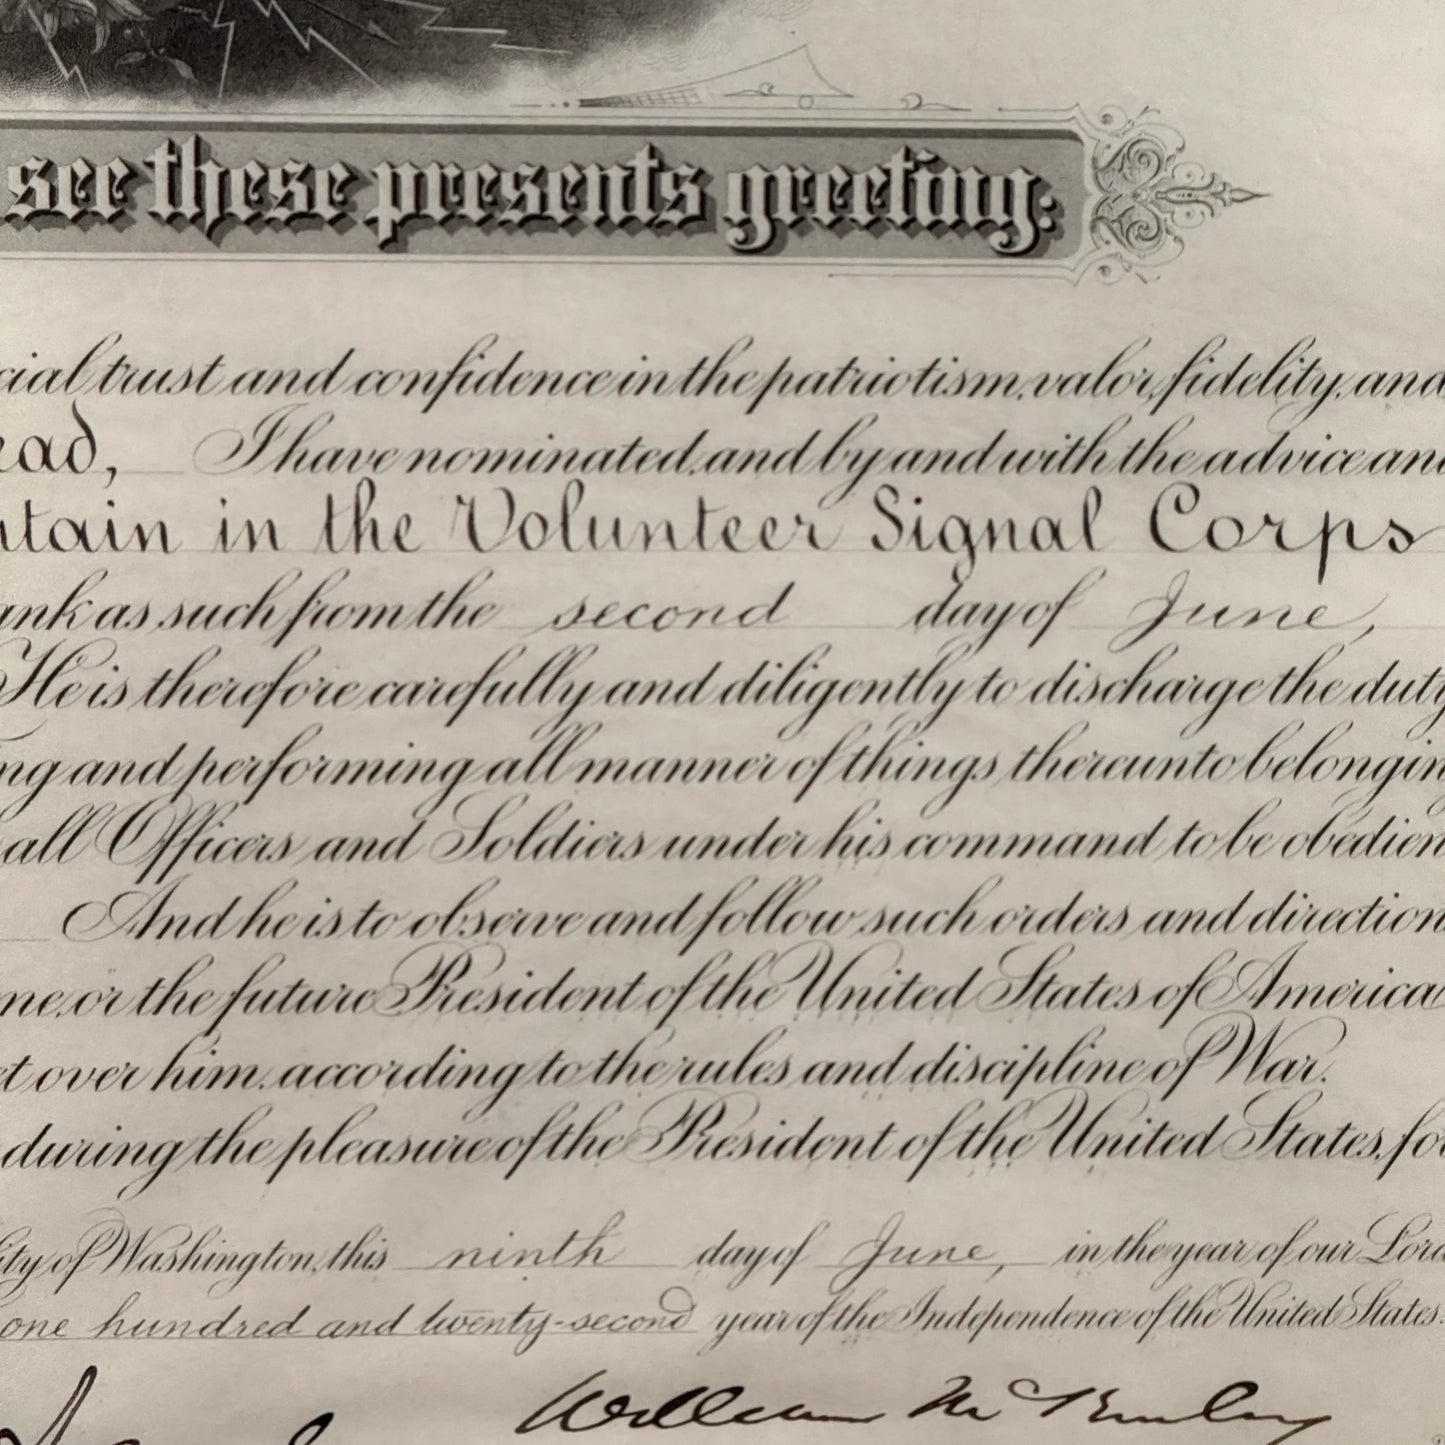 see these presents greeting:
cial trust and confidence in the patriotism, valor, fidelity, and
ead, I have nominated, and by and with the advice and
ntain in the Volunteer Signal Corps
ank as such from the second day of June,
He is therefore carefully and diligently to discharge the duty
ng and performing all manner of things thereunto belonging
all Officers and Soldiers under his command to be obedien
And he is to observe and follow such orders and direction
me, or the future President of the United States of America
et over him, according to the rules and discipline of War.
during the pleasure of the President of the United States, for
City of Washington, this ninth day of June, in the year of our Lord
one hundred and twenty-second year of the Independence of the United States.
William McKinley